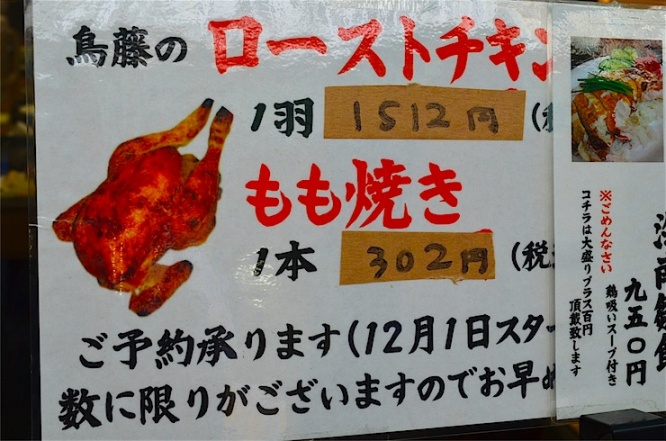 鳥藤の ローストチキン
1羽 1512円 (税
もも焼き
1本 302円 (税
ご予約承ります(12月1日スター
数に限りがございますのでお早め
九五〇円
鶏吸いスープ付き
※ごめんなさい
コチラは大盛りプラス百円
頂戴致します